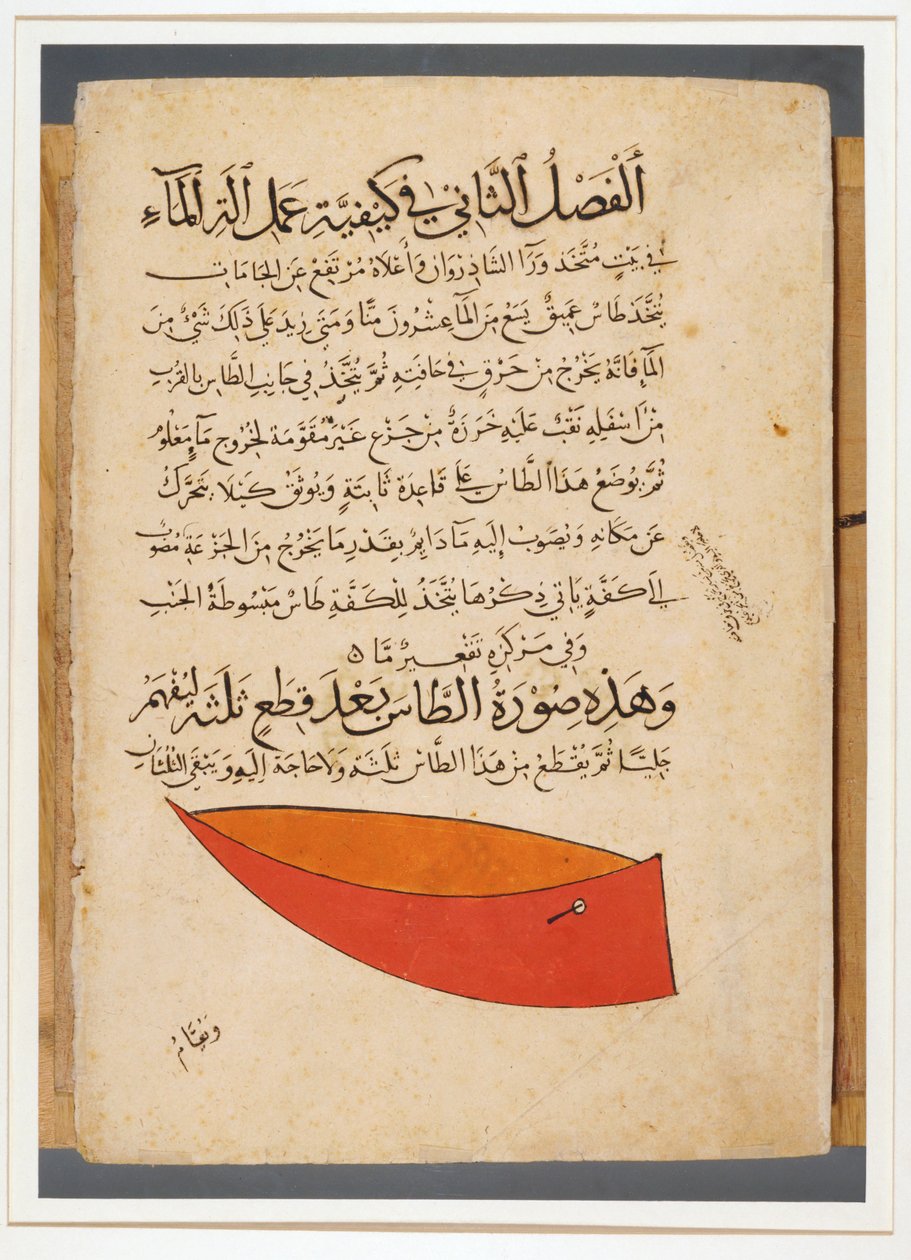 أَلْفَصْلُ الثَّانِيْ فِي كَيْفِيَّةِ عَمَلِ آلَةِ الْمَآءِ
في بَيْتٍ مُتَّخَذ وَرَآ الشاذِرْوَان في أَعْلَاهُ مُرْتَفِعْ عَنِ الجَامَاتِ
يُتَّخَذ طَاسٌ عَمِيقٌ يَسَعُ مِنَ المَآ عِشْرُونَ مَنًّا وَمَتَى زِيدَ عَلَى ذَلِكَ شَيْءٌ مِنَ
المَآءِ فَانَّهُ يَخْرُجُ مِنْ خَرْقٍ فِي حَافَتِهِ ثُمَّ يُتَّخَذُ فِي جَانِبِ الطَّاسِ بِالقُربِ
مِنْ اَسْفَلِهِ نَقْبٌ عَلَيْهِ خَرَزَةٌ مِنْ جَزْعِ غَيْرُ مُقَوَّمَة لِخُرُوجِ مَآءٍ مَعْلُومٍ
ثُمَّ يُوضَعُ هَذَا الطَّاسُ عَلَى قَاعِدَة ثَابِتَةٍ وَيُوثَقُ كَيْلَا يَتَحَرَّكُ
عَن مَكَانِهِ وَيَصُوبْ إِلَيْهِ مَآ دَايِمٌ بِقَدْرِ مَا يَخْرُجُ مِنَ الجَزْعَةِ مَصُوبٌ
إِلَى كَفَّةٍ يَاتِي ذِكْرُهَا يُتَّخَذُ لِلْكَفَّةِ طَاسٌ مَبْسُوطَةُ الجَنْبِ
وَفِي مَرْكَزِهِ تَقْعِيرٌ مَّا ه
وَهَذِهِ صُوْرَةُ الطَّاسِ بَعْدَ قِطَعِ ثَلَثَةٍ لِيُفْهَمُ
جَلِيًّا ثُمَّ يُقْطَعُ مِنْ هَذَا الطَّاسِ ثَلَثَهُ وَلَا حَاجَةَ إِلَيْهِ وَيَبْقَى الثُلُثَانِ
وَيُقَامُ